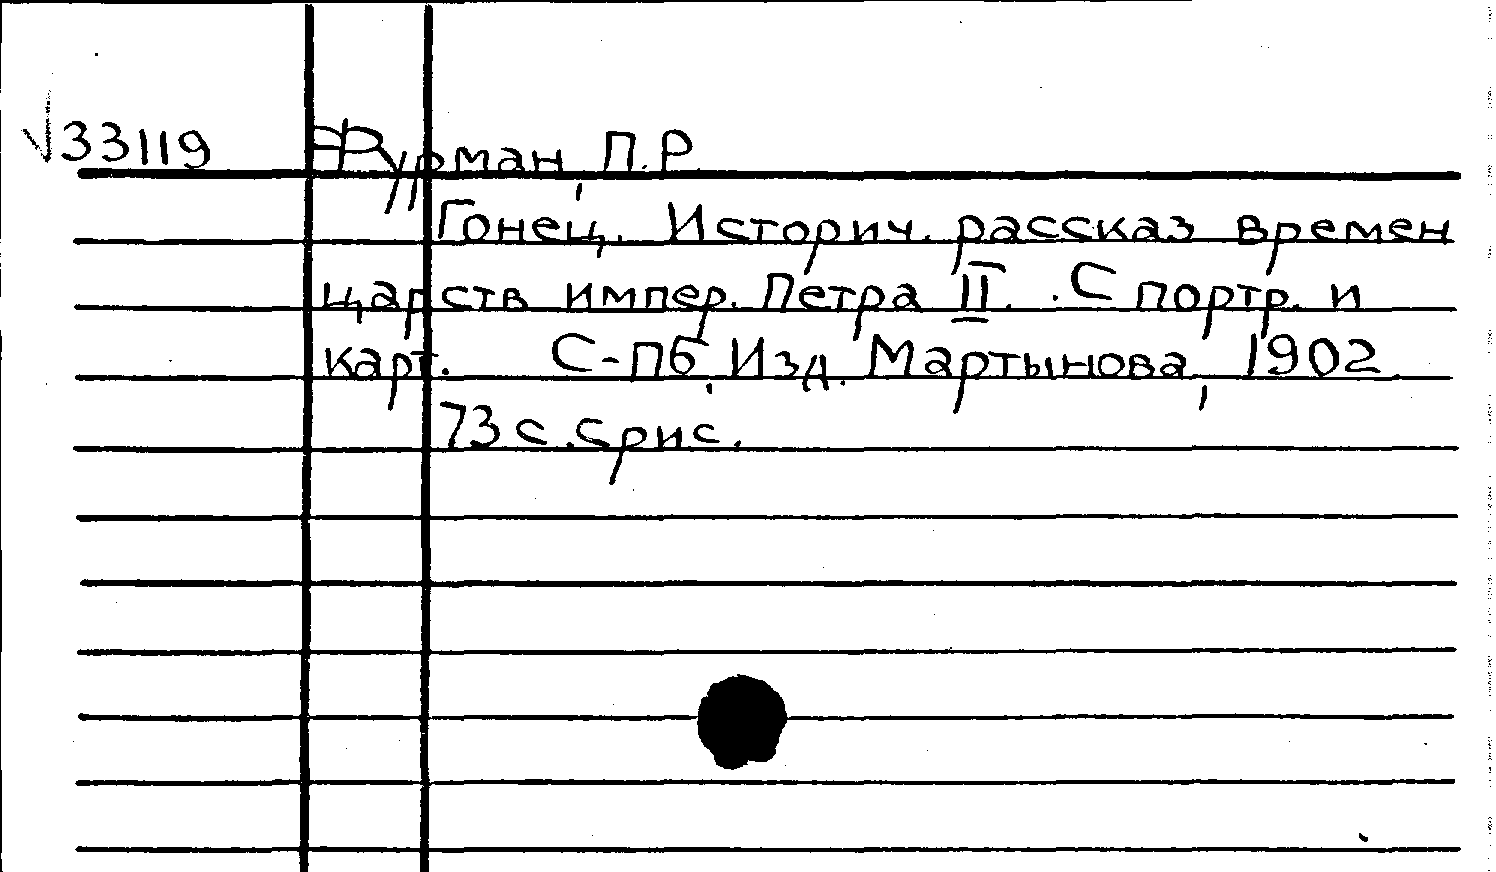 √33119 Фурман, П.Р
Гонец. Историч. рассказ времен
царств импер. Петра II. . С портр. и
карт. С-Пб, Изд. Мартынова, 1902
73 с. с рис.